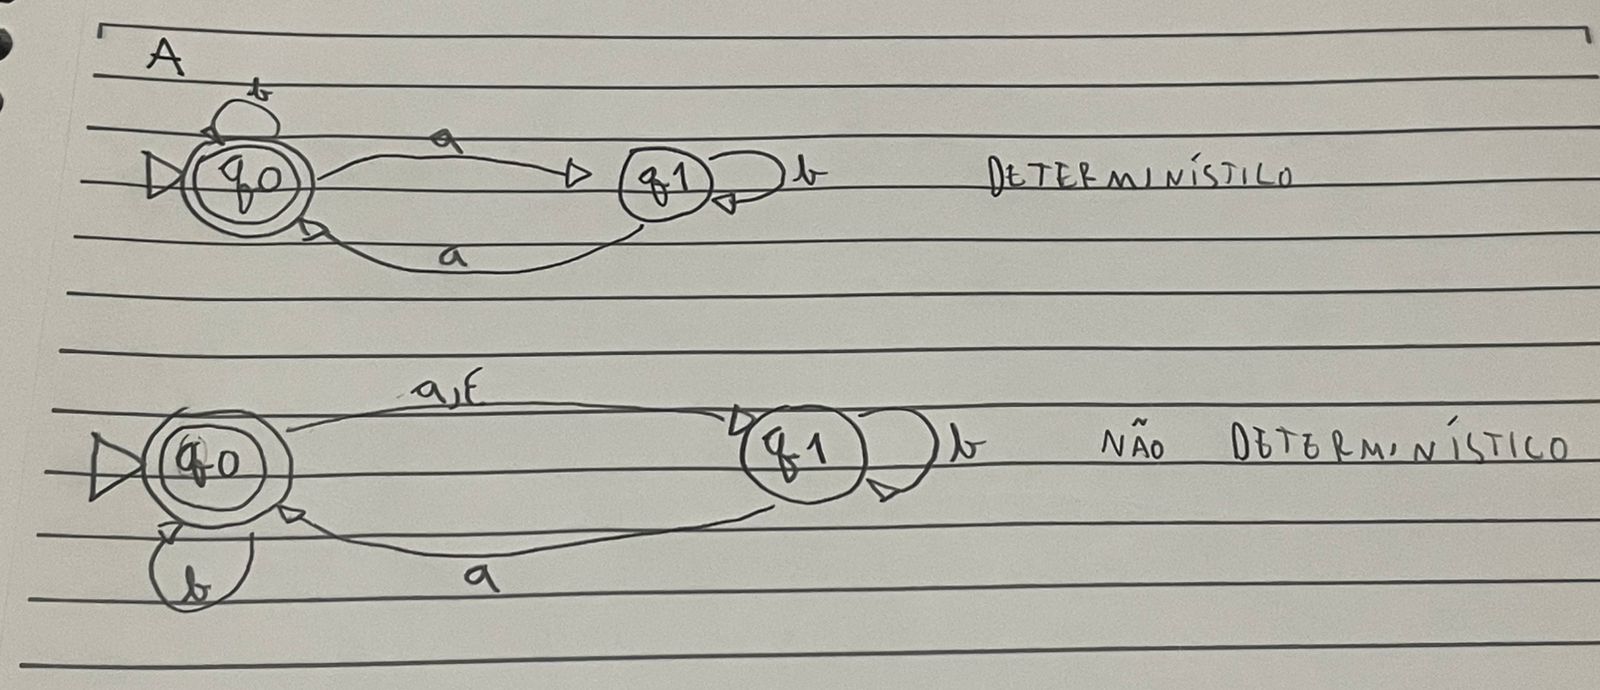 A
b
a
q0 q1 b DETERMINÍSTICO
a
a,ε
q0 q1 b NÃO DETERMINÍSTICO
b
a